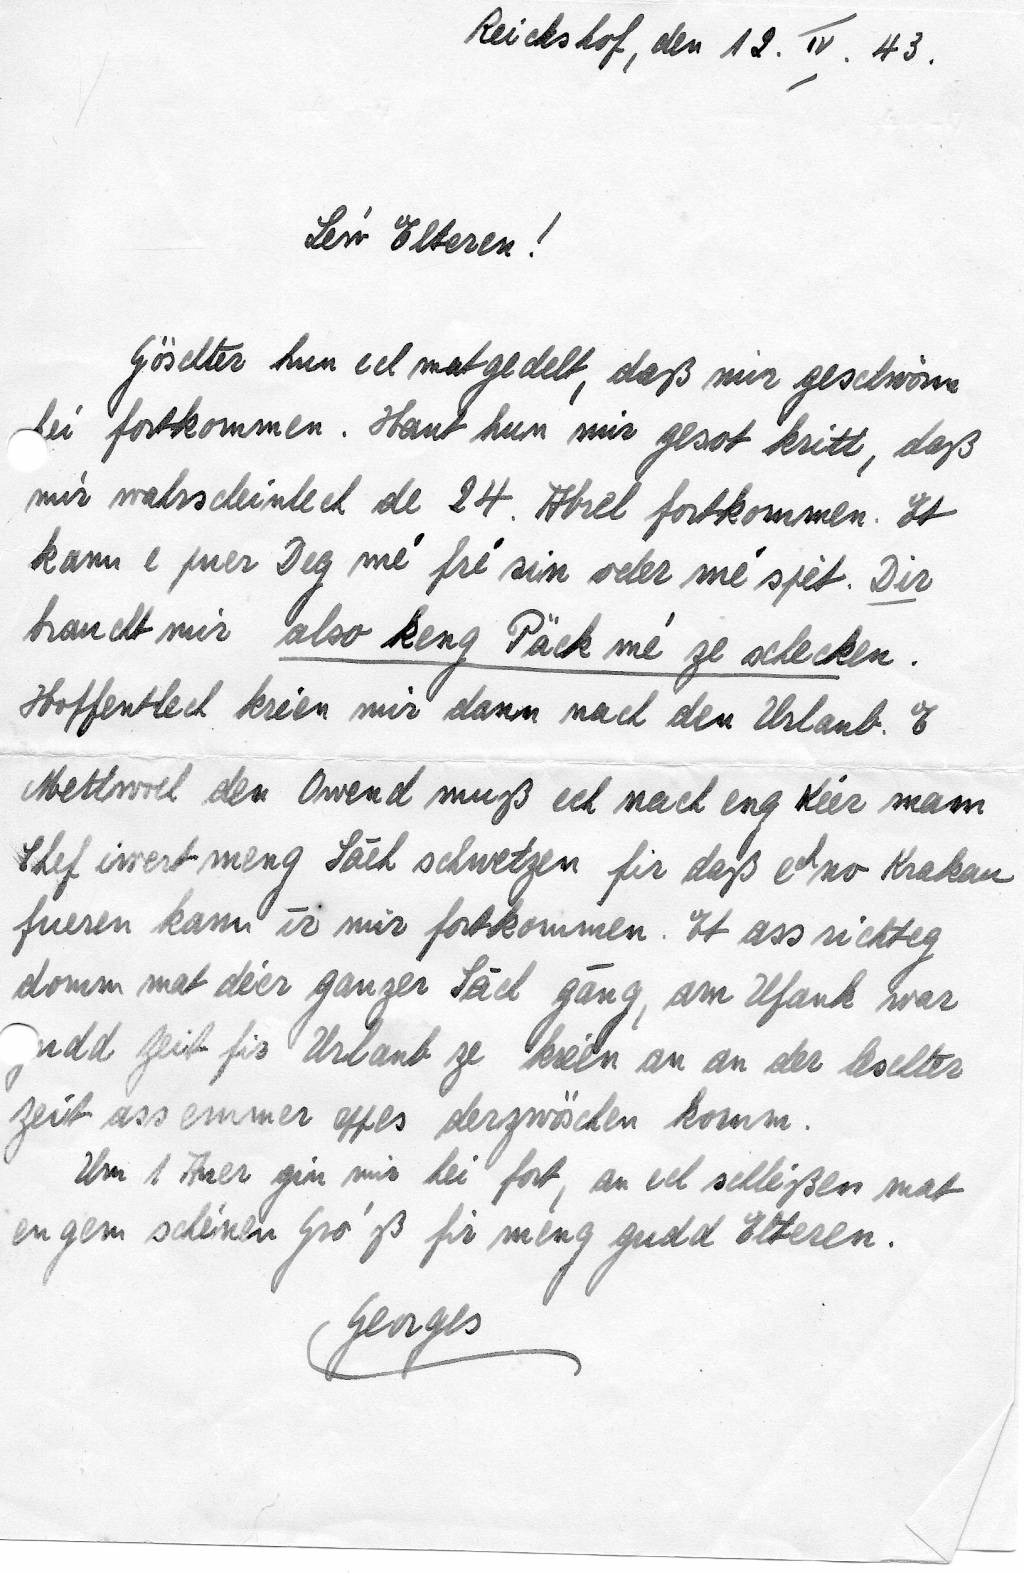 Reichshof, den 12. IV. 43.
Léiw Elteren!
Göschter hun ech matgedelt, daß mir geschwönn
hei fortkommen. Haut hun mir gesot kritt, daß
mir wahrscheinlech de 24. Abrël fortkommen. Et
kann e puer Deg mé fré sin oder mé spét. Dir
braucht mir also keng Päck mé ze schecken.
Hoffentlech kréien mir dann nach den Urlaub. E
Mettwoch den Owend muß ech nach eng Kéier mam
Chef iwert meng Säch schwetzen fir daß ech no Krakau
fueren kann ir mir fortkommen. Et ass richteg
domm mat déer ganzer Säch gäng, am Ufank war
gudd Zeit fir Urlaub ze kréien an an der leschter
Zeit ass emmer eppes derzwöschen komm.
Um 1 Auer gin mir hei fort, an ech schléißen mat
engem schéinen Gro'ß fir meng gudd Elteren.
Georges